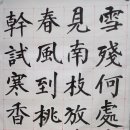 雪殘何處
見南枝放
春風到桃
幹試寒香